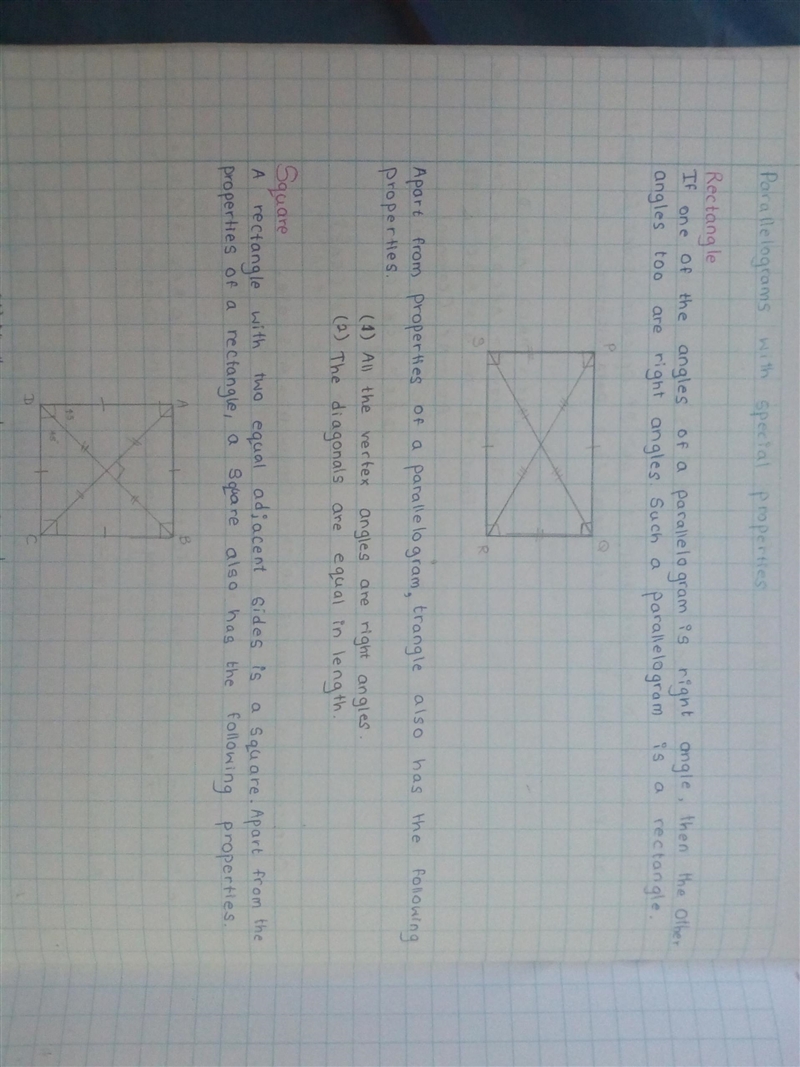 Parallelograms with special properties
Rectangle
If one of the angles of a parallelogram is right angle, then the other
angles too are right angles. Such a parallelogram is a rectangle.
P
Q
S
R
Apart from properties of a parallelogram, trangle also has the following
properties.
(1) All the vertex angles are right angles.
(2) The diagonals are equal in length.
Square
A rectangle with two equal adjacent sides is a square. Apart from the
properties of a rectangle, a square also has the following properties.
A
B
D
C